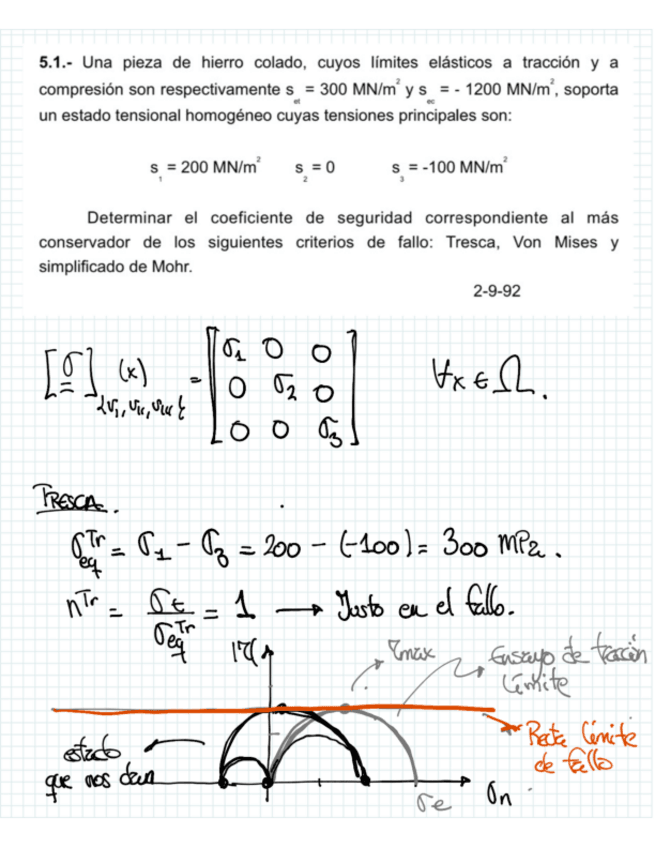 5.1.- Una pieza de hierro colado, cuyos límites elásticos a tracción y a
compresión son respectivamente s_et = 300 MN/m² y s_ec = - 1200 MN/m², soporta
un estado tensional homogéneo cuyas tensiones principales son:
s_1 = 200 MN/m² s_2 = 0 s_3 = -100 MN/m²
Determinar el coeficiente de seguridad correspondiente al más
conservador de los siguientes criterios de fallo: Tresca, Von Mises y
simplificado de Mohr.
2-9-92
[σ] (x) {v_I, v_II, v_III} = [σ1 0 0
0 σ2 0
0 0 σ3] ∀x ∈ Ω.
TRESCA.
σ_eq^Tr = σ1 - σ3 = 200 - (-100) = 300 MPa.
n^Tr = σe / σ_eq^Tr = 1 → Justo en el fallo.
|τ|
τmax
Ensayo de tracción
límite
Recta límite
de fallo
estado
que nos dan
σe
σn